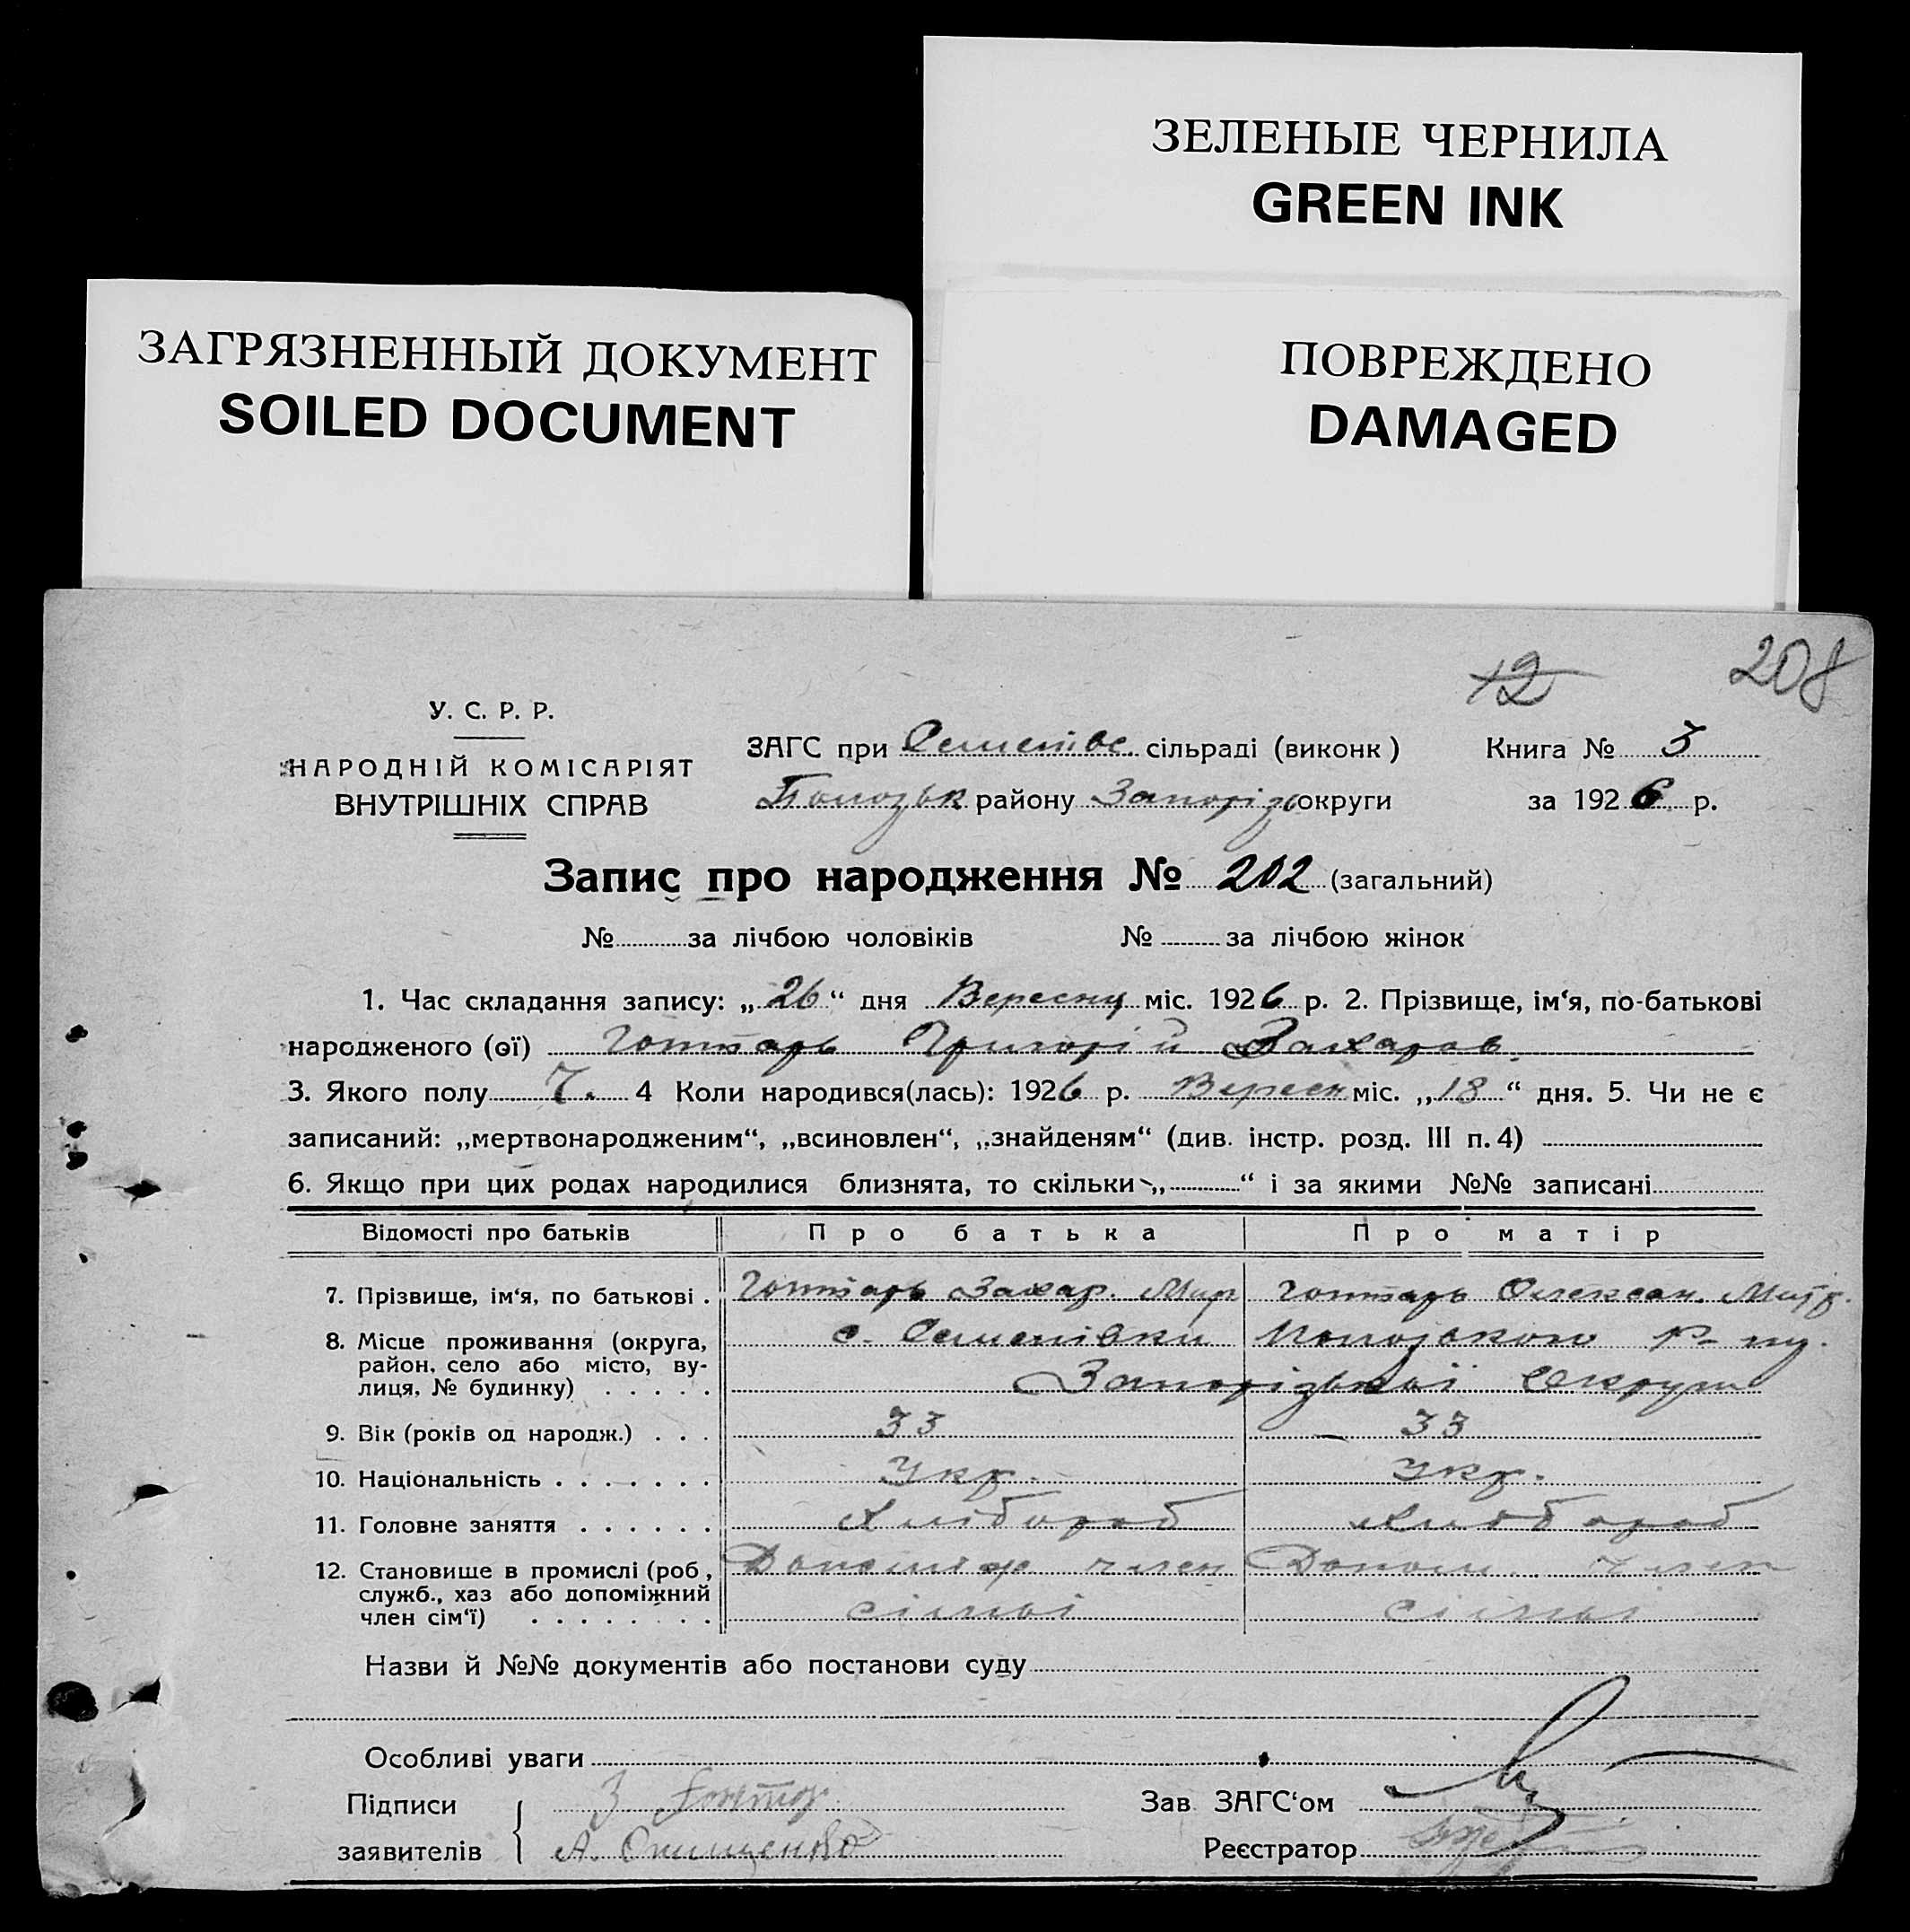 ЗЕЛЕНЫЕ ЧЕРНИЛА
GREEN INK
ЗАГРЯЗНЕННЫЙ ДОКУМЕНТ
SOILED DOCUMENT
ПОВРЕЖДЕНО
DAMAGED
12 208
У. С. Р. Р.
НАРОДНІЙ КОМІСАРІЯТ
ВНУТРІШНІХ СПРАВ
ЗАГС при Семенівс. сільраді (виконк) Книга № 3
Пологськ району Запорізь округи за 1926 р.
Запис про народження № 202 (загальний)
№ за лічбою чоловіків № за лічбою жінок
1. Час складання запису: „26“ дня Вересня міс. 1926 р. 2. Прізвище, ім‘я, по-батькові
народженого (ої) Гонтарь Григорій Захаров.
3. Якого полу Ч. 4 Коли народився(лась): 1926 р. Вересн міс. „18“ дня. 5. Чи не є
записаний: „мертвонародженим“, „всиновлен“, „знайденям“ (див. інстр. розд. III п. 4)
6. Якщо при цих родах народилися близнята, то скільки „ “ і за якими №№ записані
Відомості про батьків Про батька Про матір
7. Прізвище, ім‘я, по батькові . Гонтарь Захар. Мир Гонтарь Олексан. Митр.
8. Місце проживання (округа, с. Семенівки Пологського р-ну.
район, село або місто, ву-
лиця, № будинку) . . . . . Запорізької Округи
9. Вік (років од народж.) . . . 33 33
10. Національність . . . . . . . Укр. Укр.
11. Головне заняття . . . . . . Хлібороб Хлібороб
12. Становище в промислі (роб, Допоміж член Допом. член
служб., хаз або допоміжний
член сім‘ї) . . . . . . . . сімьї сімьї
Назви й №№ документів або постанови суду
Особливі уваги
Підписи З Гонтар Зав ЗАГС‘ом
заявителів А. Онищенко Реєстратор